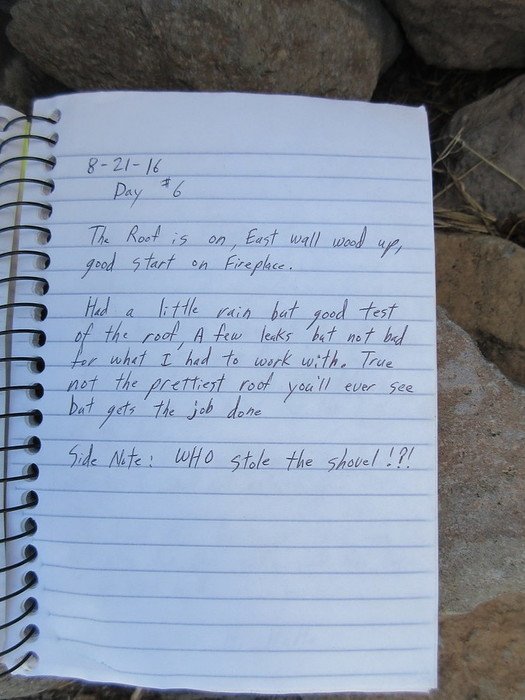 8-21-16
Day #6
The Roof is on, East wall wood up,
good start on Fireplace.
Had a little rain but good test
of the roof, A few leaks but not bad
for what I had to work with. True
not the prettiest roof you'll ever see
but gets the job done
Side Note: WHO stole the shovel!?!